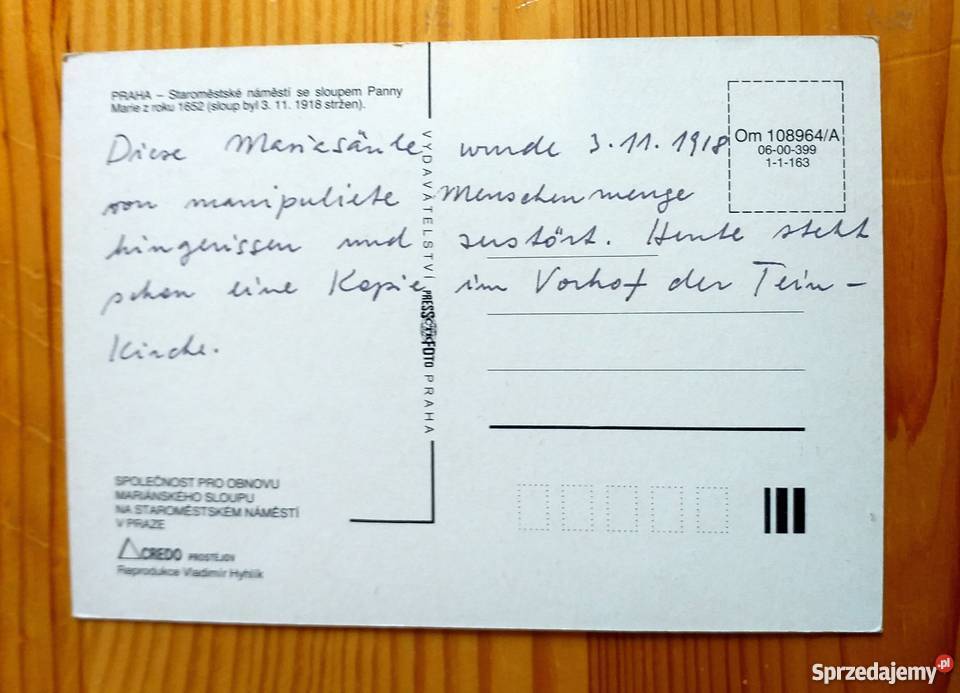 PRAHA – Staroměstské náměstí se sloupem Panny
Marie z roku 1652 (sloup byl 3. 11. 1918 stržen).
Diese Mariesäule wurde 3.11.1918
von manipuliete Menschenmenge
hingerissen und zustört. Heute steht
schon eine Kopie im Vorhof der Tein-
Kirche.
VYDAVATELSTVÍ PRESSFOTO PRAHA
Om 108964/A
06-00-399
1-1-163
SPOLEČNOST PRO OBNOVU
MARIÁNSKÉHO SLOUPU
NA STAROMĚSTSKÉM NÁMĚSTÍ
V PRAZE
CREDO PROSTĚJOV
Reprodukce Vladimír Hyhlík
Sprzedajemy.pl